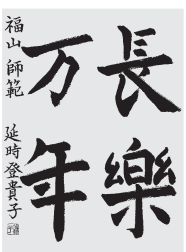 長樂
万年
福山 師範 延時登貴子